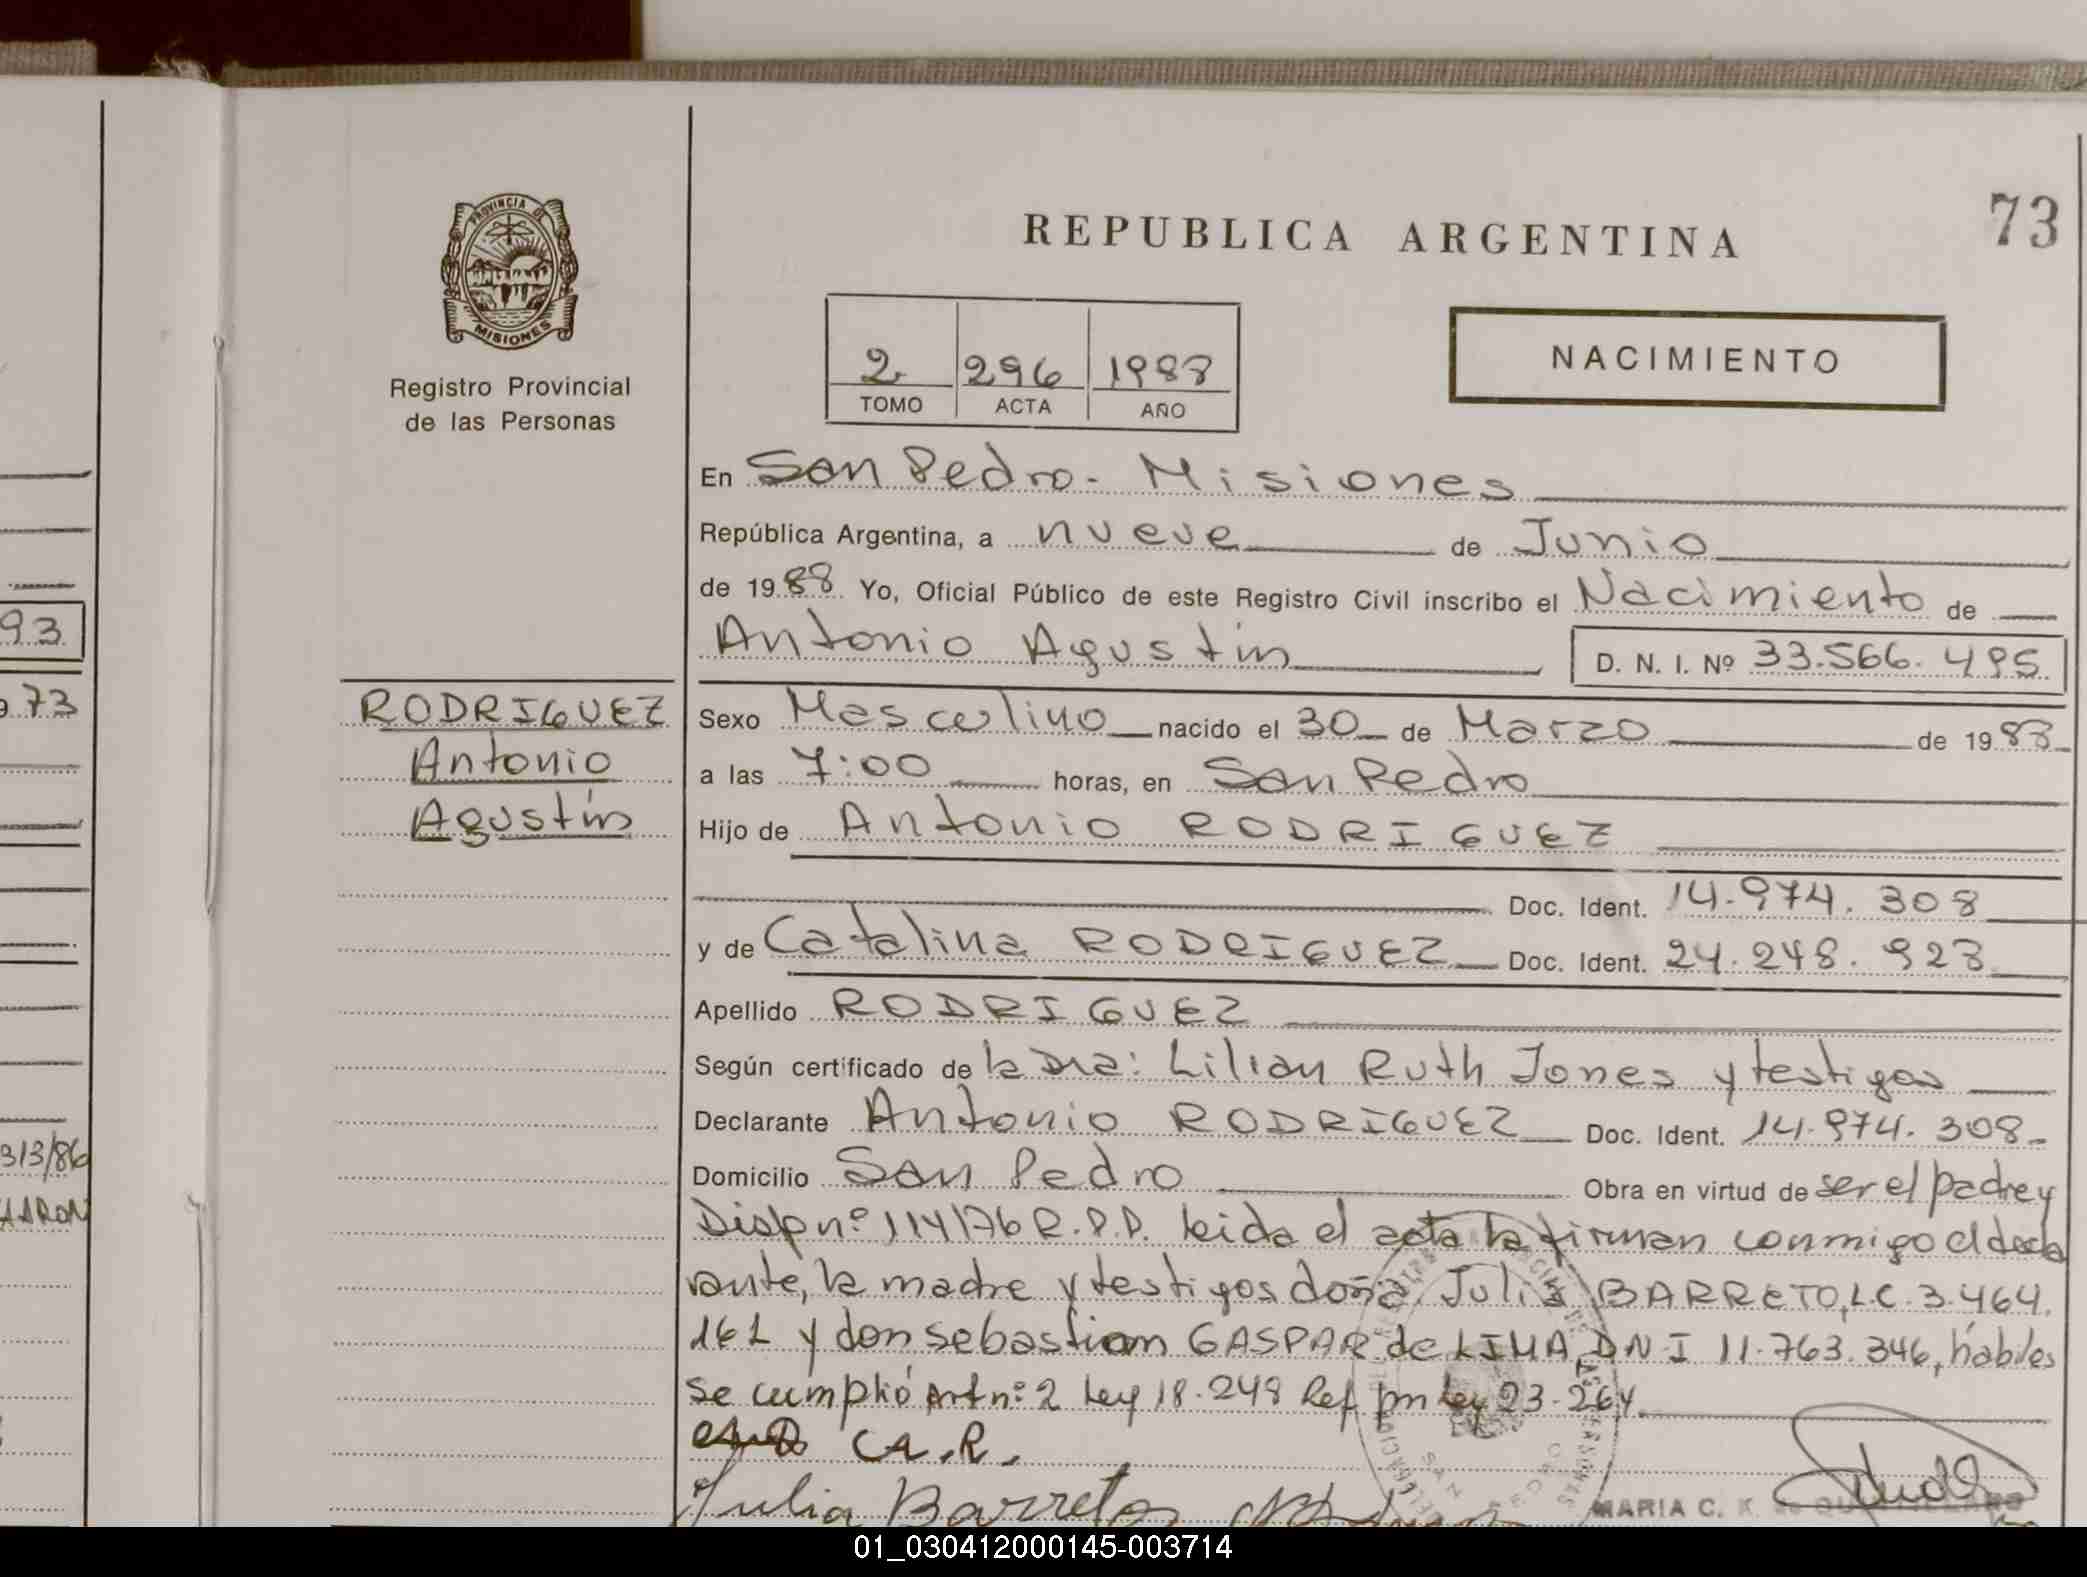 93
73
313/86
PROVINCIA DE
MISIONES
Registro Provincial
de las Personas
RODRIGUEZ
Antonio
Agustín
REPUBLICA ARGENTINA
73
2 296 1988
TOMO ACTA AÑO
NACIMIENTO
En San Pedro - Misiones
República Argentina, a nueve de Junio
de 1988 Yo, Oficial Público de este Registro Civil inscribo el Nacimiento de
Antonio Agustín D. N. I. Nº 33.566.495
Sexo Masculino nacido el 30 de Marzo de 1988
a las 7:00 horas, en San Pedro
Hijo de Antonio RODRIGUEZ
Doc. Ident. 14.974.308
y de Catalina RODRIGUEZ Doc. Ident. 24.248.928
Apellido RODRIGUEZ
Según certificado de la Dra: Lilian Ruth Jones y testigos
Declarante Antonio RODRIGUEZ Doc. Ident. 14.974.308
Domicilio San Pedro Obra en virtud de ser el padre y
Disp nº 114/76 R.P.P. leida el acta la firman conmigo el decla
rante, la madre y testigos doña Julia BARRETO, L.C. 3.464.
161 y don Sebastian GASPAR de LIMA DNI 11.763.346, habiles
se cumplió Art nº 2 Ley 18.248 Ref por Ley 23.264
C A.R.
Julia Barreto
MARIA C. K.
01_030412000145-003714